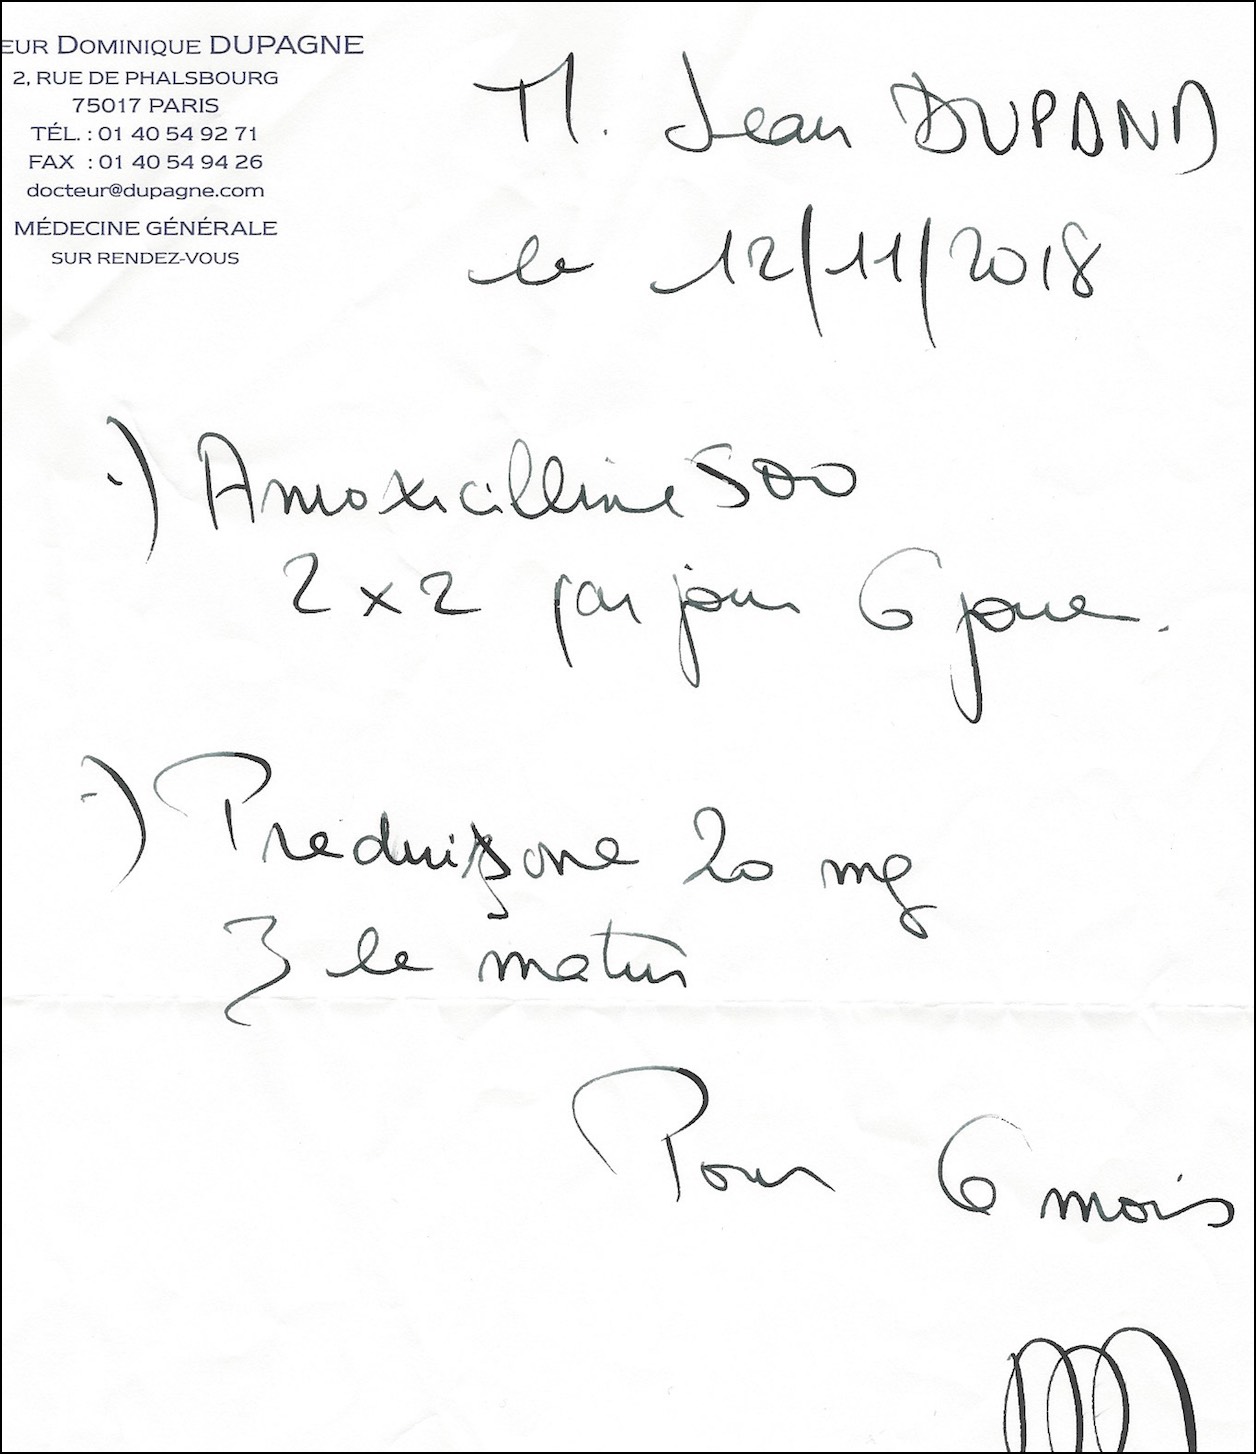 EUR DOMINIQUE DUPAGNE
2, RUE DE PHALSBOURG
75017 PARIS
TÉL. : 01 40 54 92 71
FAX : 01 40 54 94 26
docteur@dupagne.com
MÉDECINE GÉNÉRALE
SUR RENDEZ-VOUS
M. Jean DUPOND
le 12/11/2018
-) Amoxicilline 500
2 x 2 par jour 6 jours.
-) Prednisone 20 mg
3 le matin
Pour 6 mois